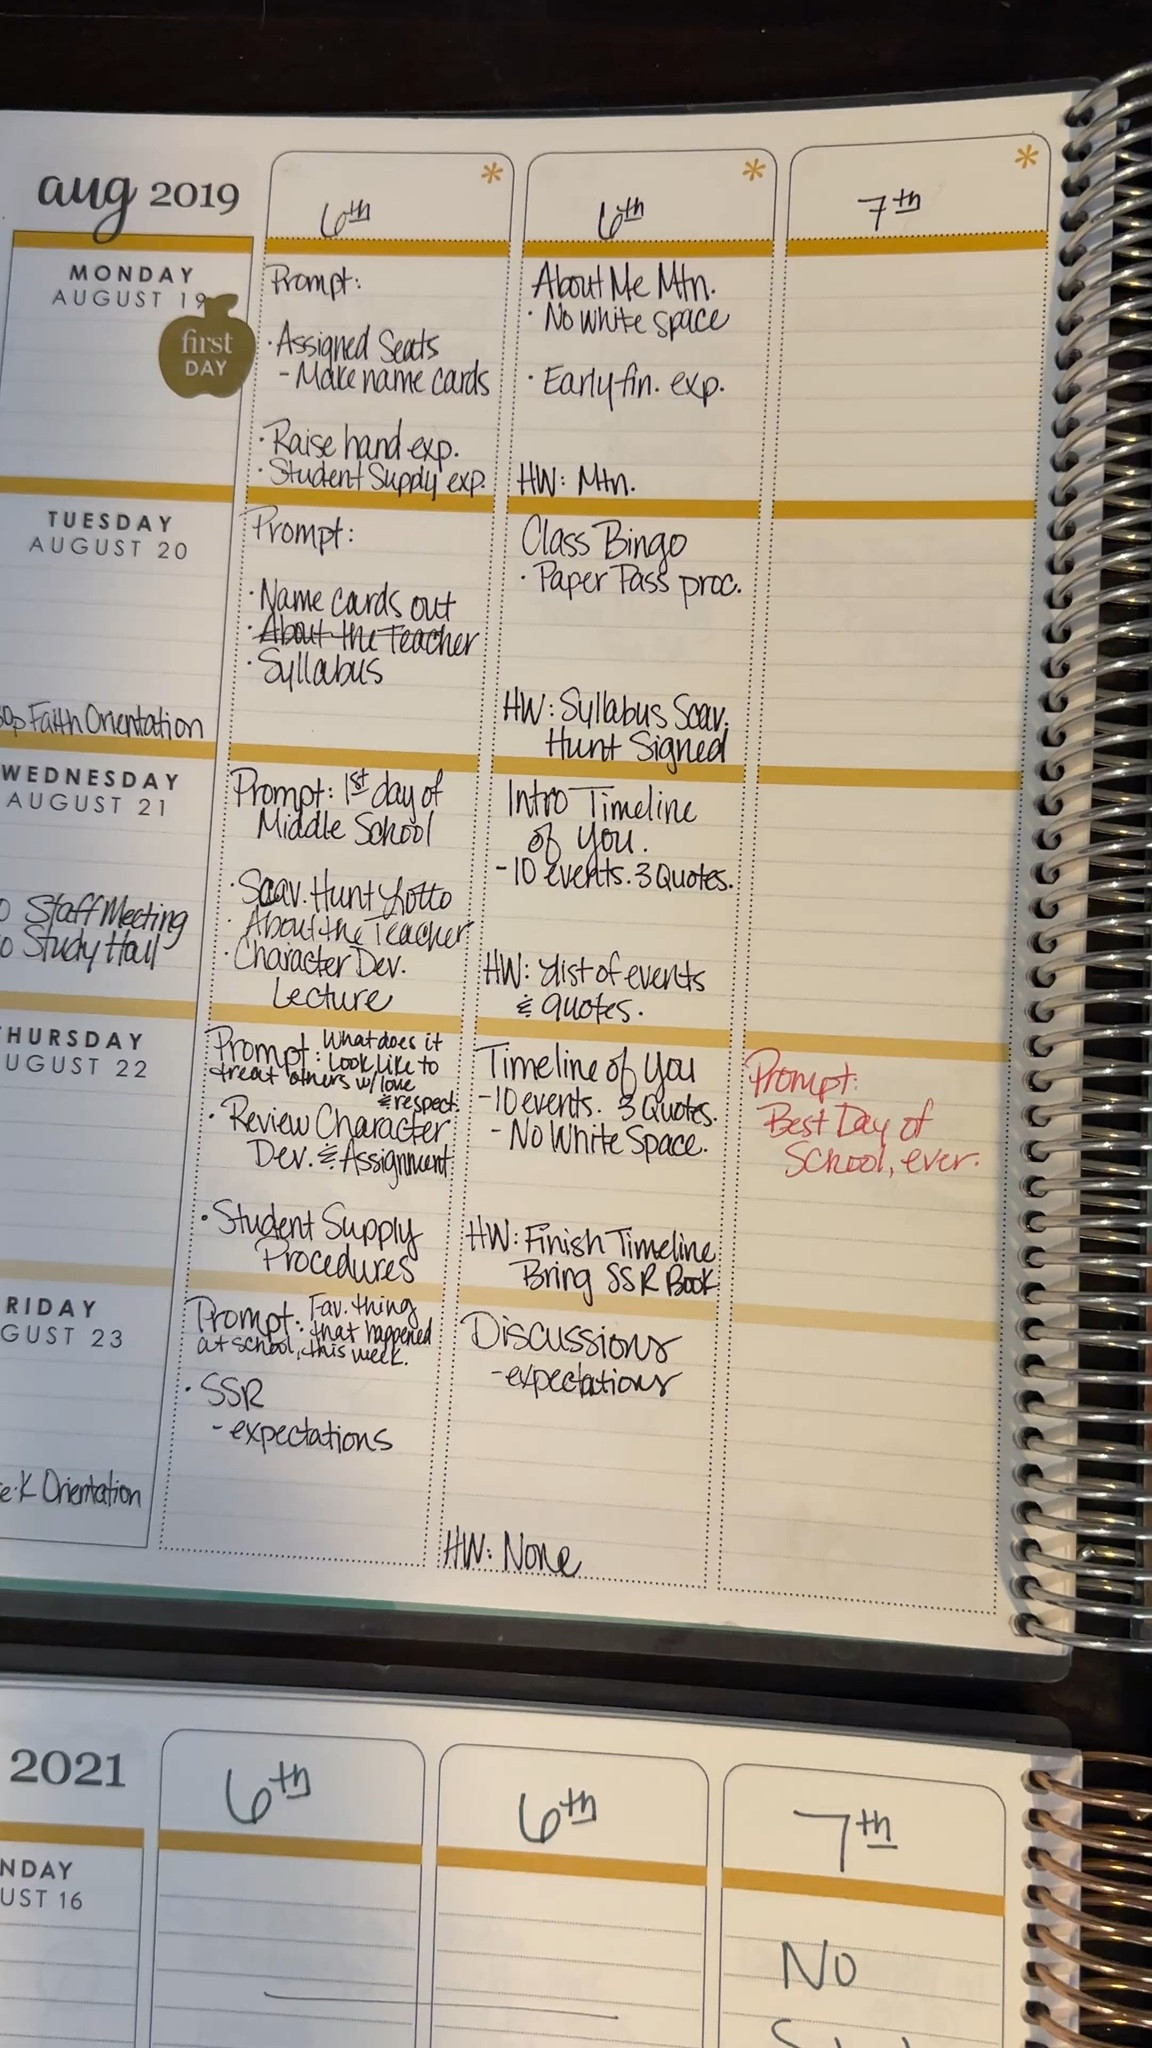 aug 2019
6th
6th
7th
MONDAY
AUGUST 19
first
DAY
Prompt:
· Assigned Seats
- Make name cards
· Raise hand exp.
· Student Supply exp.
About Me Mtn.
· No white space
· Early fin. exp.
HW: Mtn.
TUESDAY
AUGUST 20
Faith Orientation
Prompt:
· Name cards out
· About the Teacher
· Syllabus
Class Bingo
· Paper Pass proc.
HW: Syllabus Scav.
Hunt Signed
WEDNESDAY
AUGUST 21
Staff Meeting
Study Hall
Prompt: 1st day of
Middle School
· Scav. Hunt Lotto
· About the Teacher
· Character Dev.
Lecture
Intro Timeline
of You.
- 10 events. 3 Quotes.
HW: List of events
& quotes.
THURSDAY
UGUST 22
Prompt: What does it
look like to
treat others w/ love
& respect.
· Review Character
Dev. & Assignment
· Student Supply
Procedures
Timeline of You
- 10 events. 3 Quotes.
- No White Space.
HW: Finish Timeline
Bring SSR Book
Prompt:
Best Day of
School, ever.
RIDAY
GUST 23
K Orientation
Prompt: Fav. thing
that happened
at school, this week.
· SSR
- expectations
Discussions
- expectations
HW: None
2021
6th
6th
7th
NDAY
UST 16
No